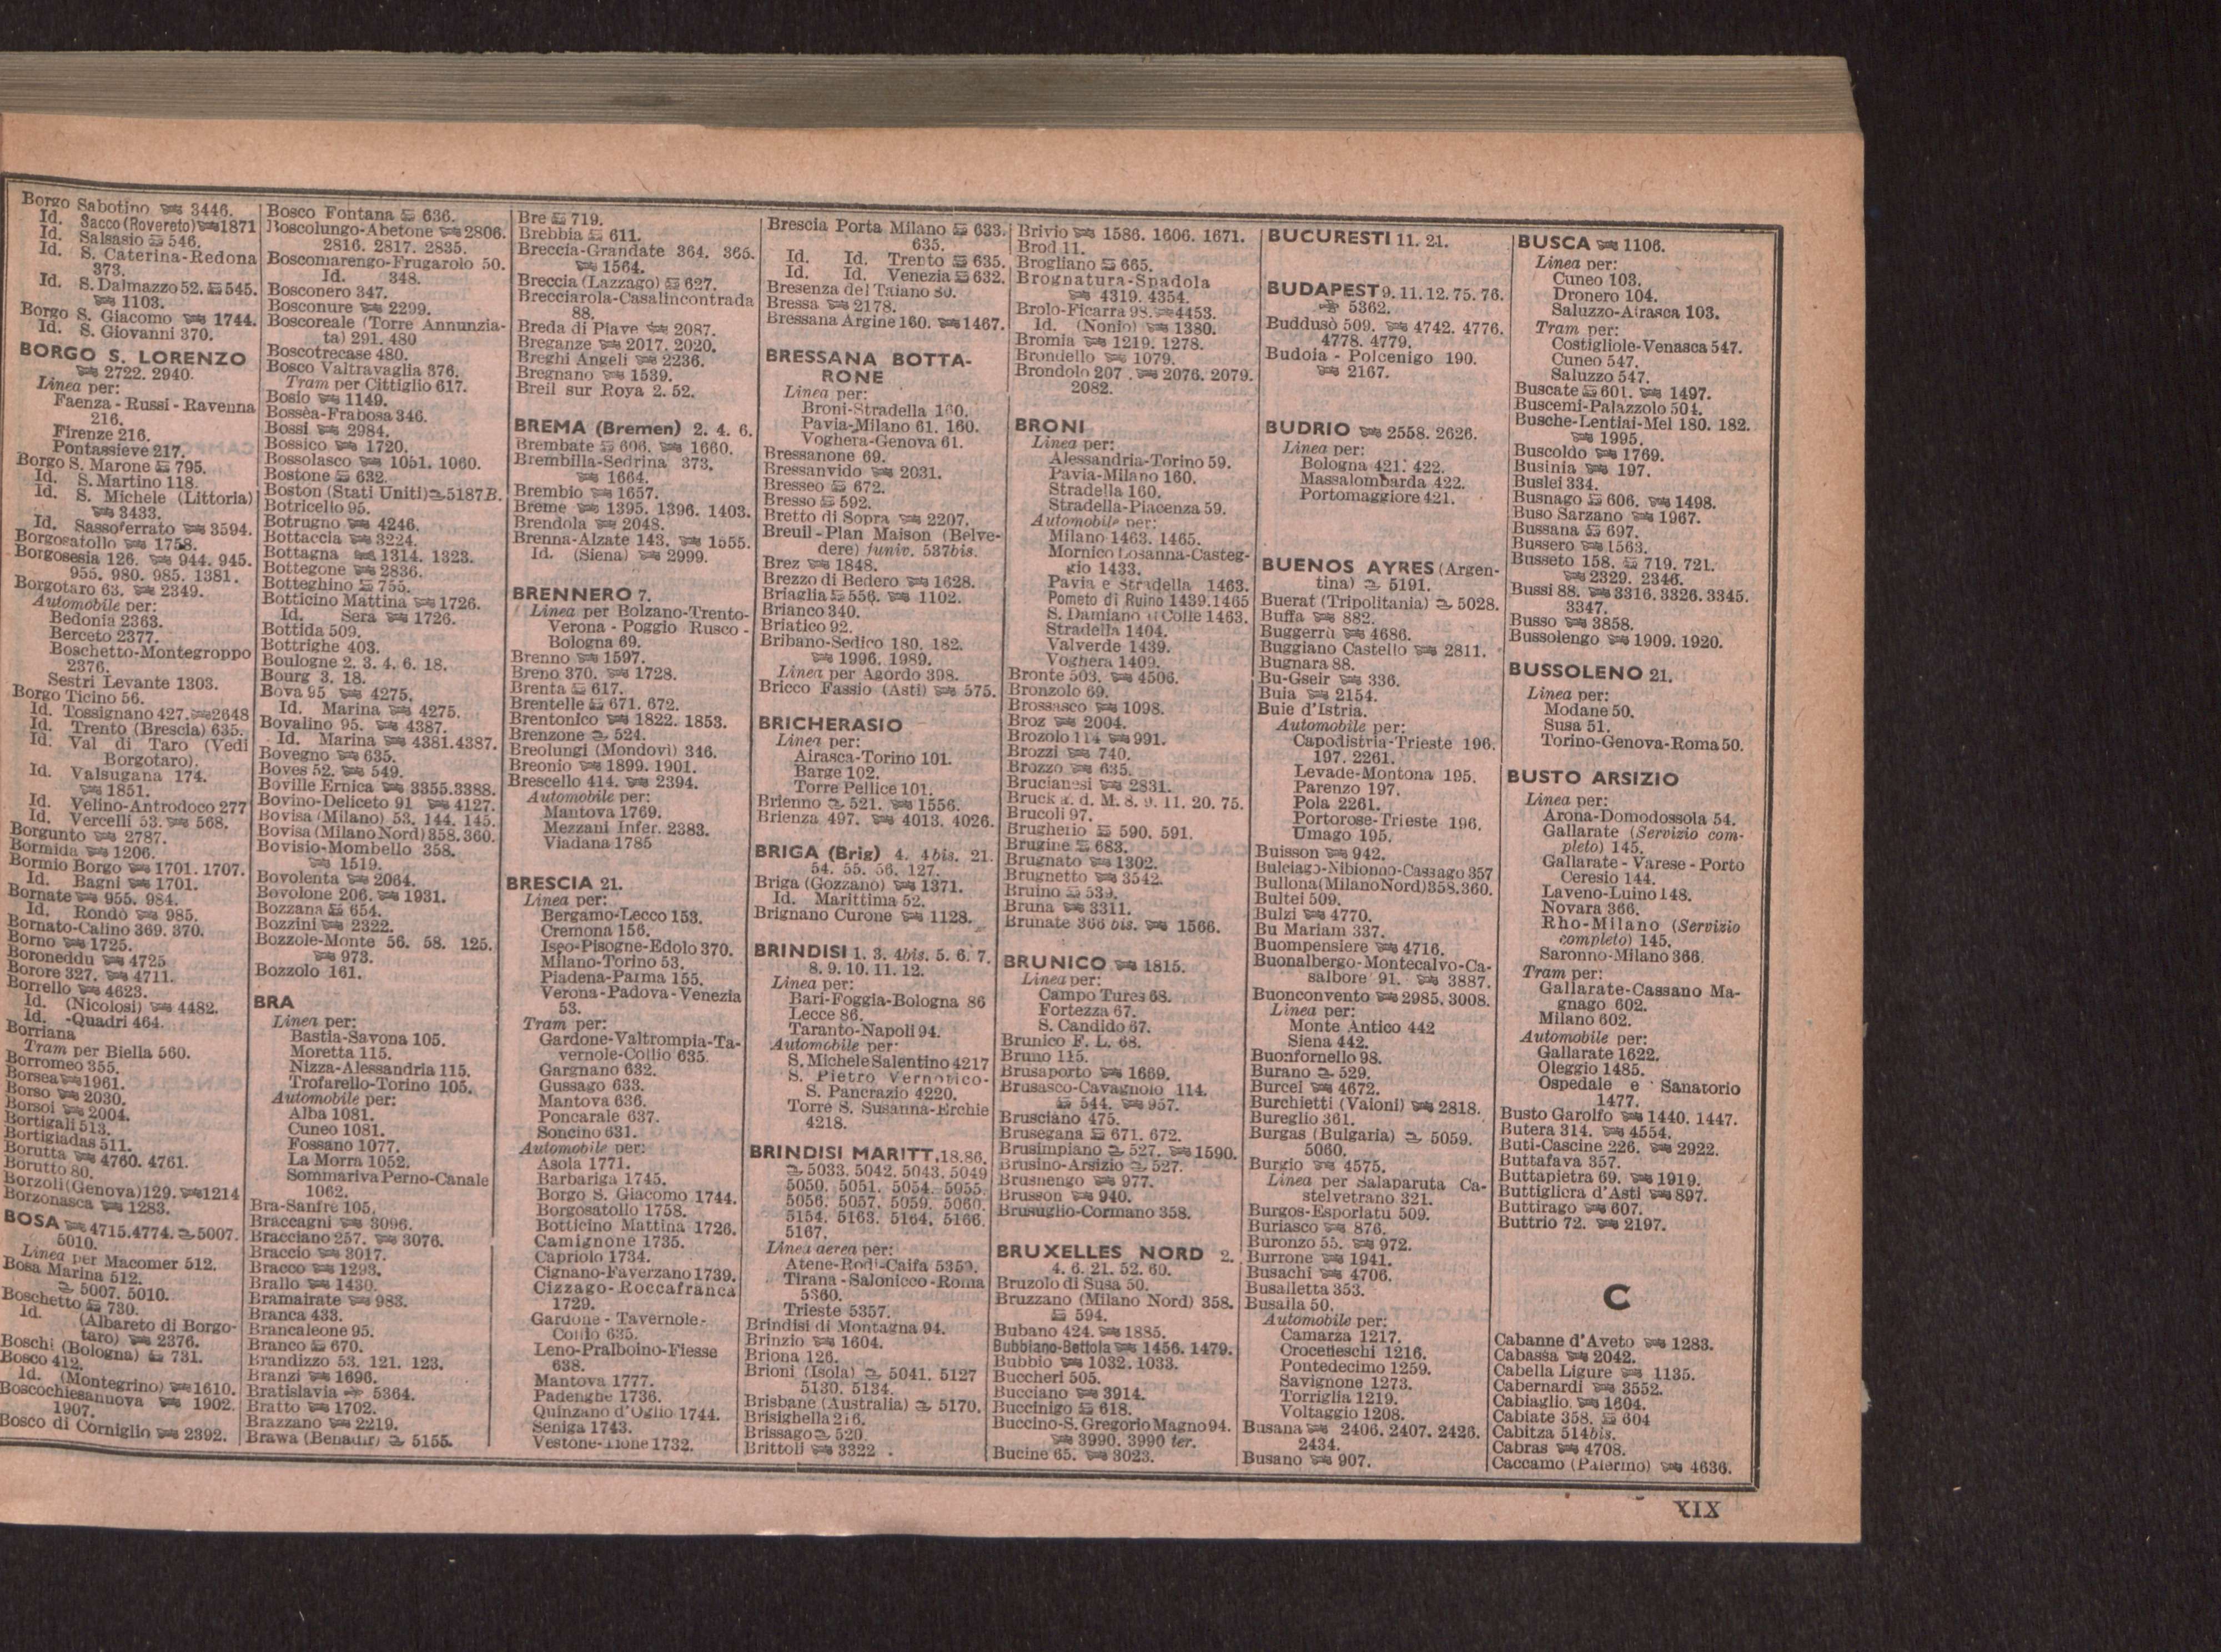 Borgo Sabotino 3446.
Id. Sacco (Rovereto) 1871
Id. Salsasio 546.
Id. S. Caterina-Redona
373.
Id. S. Dalmazzo 52. 545.
1103.
Borgo S. Giacomo 1744.
Id. S. Giovanni 370.
BORGO S. LORENZO
2722. 2940.
Linea per:
Faenza - Russi - Ravenna
216.
Firenze 216.
Pontassieve 217.
Borgo S. Marone 795.
Id. S. Martino 118.
Id. S. Michele (Littoria)
3433.
Id. Sassoferrato 3594.
Borgosatollo 1758.
Borgosesia 126. 944. 945.
955. 980. 985. 1381.
Borgotaro 63. 2349.
Automobile per:
Bedonia 2363.
Berceto 2377.
Boschetto-Montegroppo
2376.
Sestri Levante 1303.
Borgo Ticino 56.
Id. Tossignano 427. 2648
Id. Trento (Brescia) 635.
Id. Val di Taro (Vedi
Borgotaro).
Id. Valsugana 174.
1851.
Id. Velino-Antrodoco 277
Id. Vercelli 53. 568.
Borgunto 2787.
Bormida 1206.
Bormio Borgo 1701. 1707.
Id. Bagni 1701.
Bornate 955. 984.
Id. Rondò 985.
Bornato-Calino 369. 370.
Borno 1725.
Boroneddu 4725
Borore 327. 4711.
Borrello 4623.
Id. (Nicolosi) 4482.
Id. -Quadri 464.
Borriana
Tram per Biella 560.
Borromeo 355.
Borsea 1961.
Borso 2030.
Borsoi 2004.
Bortigali 513.
Bortigiadas 511.
Borutta 4760. 4761.
Borutto 80.
Borzoli (Genova) 129. 1214
Borzonasca 1283.
BOSA 4715. 4774. 5007.
5010.
Linea per Macomer 512.
Bosa Marina 512.
5007. 5010.
Boschetto 730.
Id. (Albareto di Borgo-
taro) 2376.
Boschi (Bologna) 731.
Bosco 412.
Id. (Montegrino) 1610.
Boscochiesanuova 1902.
1907.
Bosco di Corniglio 2392.
Bosco Fontana 636.
Boscolungo-Abetone 2806.
2816. 2817. 2835.
Boscomarengo-Frugarolo 50.
Id. 348.
Bosconero 347.
Bosconure 2299.
Boscoreale (Torre Annunzia-
ta) 291. 480
Boscotrecase 480.
Bosco Valtravaglia 376.
Tram per Cittiglio 617.
Bosio 1149.
Bossèa-Frabosa 346.
Bossi 2984.
Bossico 1720.
Bossolasco 1051. 1060.
Bostone 632.
Boston (Stati Uniti) 5187B.
Botricello 95.
Botrugno 4246.
Bottaccia 3224.
Bottagna 1314. 1323.
Bottegone 2836.
Botteghino 755.
Botticino Mattina 1726.
Id. Sera 1726.
Bottida 509.
Bottrighe 403.
Boulogne 2. 3. 4. 6. 18.
Bourg 3. 18.
Bova 95 4275.
Id. Marina 4275.
Bovalino 95. 4387.
Id. Marina 4381. 4387.
Bovegno 635.
Boves 52. 549.
Boville Ernica 3355. 3388.
Bovino-Deliceto 91 4127.
Bovisa (Milano) 53. 144. 145.
Bovisa (Milano Nord) 358. 360.
Bovisio-Mombello 358.
1519.
Bovolenta 2064.
Bovolone 206. 1931.
Bozzana 654.
Bozzini 2322.
Bozzole-Monte 56. 58. 125.
973.
Bozzolo 161.
BRA
Linea per:
Bastia-Savona 105.
Moretta 115.
Nizza-Alessandria 115.
Trofarello-Torino 105.
Automobile per:
Alba 1081.
Cuneo 1081.
Fossano 1077.
La Morra 1052.
Sommariva Perno-Canale
1062.
Bra-Sanfrè 105.
Braccagni 3096.
Bracciano 257. 3076.
Braccio 3017.
Bracco 1293.
Brallo 1430.
Bramairate 983.
Branca 433.
Brancaleone 95.
Branco 670.
Brandizzo 53. 121. 123.
Branzi 1696.
Bratislavia 5364.
Bratto 1702.
Brazzano 2219.
Brawa (Benadir) 5155.
Bre 719.
Brebbia 611.
Breccia-Grandate 364. 365.
1564.
Breccia (Lazzago) 627.
Brecciarola-Casalincontrada
88.
Breda di Piave 2087.
Breganze 2017. 2020.
Breghi Angeli 2236.
Bregnano 1539.
Breil sur Roya 2. 52.
BREMA (Bremen) 2. 4. 6.
Brembate 606. 1660.
Brembilla-Sedrina 373.
1664.
Brembio 1657.
Breme 1395. 1396. 1403.
Brendola 2048.
Brenna-Alzate 143. 1555.
Id. (Siena) 2999.
BRENNERO 7.
Linea per Bolzano-Trento-
Verona - Poggio Rusco -
Bologna 69.
Brenno 1597.
Breno 370. 1728.
Brenta 617.
Brentelle 671. 672.
Brentonico 1822. 1853.
Brenzone 524.
Breolungi (Mondovì) 346.
Breonio 1899. 1901.
Brescello 414. 2394.
Automobile per:
Mantova 1769.
Mezzani Infer. 2383.
Viadana 1785
BRESCIA 21.
Linea per:
Bergamo-Lecco 153.
Cremona 156.
Iseo-Pisogne-Edolo 370.
Milano-Torino 53.
Piadena-Parma 155.
Verona-Padova-Venezia
53.
Tram per:
Gardone-Valtrompia-Ta-
vernole-Collio 635.
Gargnano 632.
Gussago 633.
Mantova 636.
Poncarale 637.
Soncino 631.
Automobile per:
Asola 1771.
Barbariga 1745.
Borgo S. Giacomo 1744.
Borgosatollo 1758.
Botticino Mattina 1726.
Camignone 1735.
Capriolo 1734.
Cignano-Faverzano 1739.
Cizzago-Roccafranca
1729.
Gardone - Tavernole-
Collio 635.
Leno-Pralboino-Fiesse
638.
Mantova 1777.
Padenghe 1736.
Quinzano d'Oglio 1744.
Seniga 1743.
Vestone-Idone 1732.
Brescia Porta Milano 633.
635.
Id. Id. Trento 635.
Id. Id. Venezia 632.
Bresenza del Taiano 80.
Bressa 2178.
Bressana Argine 160. 1467.
BRESSANA BOTTA-
RONE
Linea per:
Broni-Stradella 160.
Pavia-Milano 61. 160.
Voghera-Genova 61.
Bressanone 69.
Bressanvido 2031.
Bresseo 672.
Bresso 592.
Bretto di Sopra 2207.
Breuil-Plan Maison (Belve-
dere) funiv. 537bis.
Brez 1848.
Brezzo di Bedero 1628.
Briaglia 556. 1102.
Brianco 340.
Briatico 92.
Bribano-Sedico 180. 182.
1996. 1989.
Linea per Agordo 398.
Bricco Fassio (Asti) 575.
BRICHERASIO
Linea per:
Airasca-Torino 101.
Barge 102.
Torre Pellice 101.
Brienno 521. 1556.
Brienza 497. 4013. 4026.
BRIGA (Brig) 4. 4bis. 21.
54. 55. 56. 127.
Briga (Gozzano) 1371.
Id. Marittima 52.
Brignano Curone 1128.
BRINDISI 1. 3. 4bis. 5. 6. 7.
8. 9. 10. 11. 12.
Linea per:
Bari-Foggia-Bologna 86
Lecce 86.
Taranto-Napoli 94.
Automobile per:
S. Michele Salentino 4217
S. Pietro Vernotico-
S. Pancrazio 4220.
Torre S. Susanna-Erchie
4218.
BRINDISI MARITT. 18. 86.
5033. 5042. 5043. 5049
5050. 5051. 5054. 5055.
5056. 5057. 5059. 5060.
5154. 5163. 5164. 5166.
5167.
Linea aerea per:
Atene-Rodi-Caifa 5359.
Tirana - Salonicco - Roma
5360.
Trieste 5357.
Brindisi di Montagna 94.
Brinzio 1604.
Briona 126.
Brioni (Isola) 5041. 5127
5130. 5134.
Brisbane (Australia) 5170.
Brisighella 216.
Brissago 520.
Brittoli 3322 .
Brivio 1586. 1606. 1671.
Brod 11.
Brogliano 665.
Brognatura-Spadola
4319. 4354.
Brolo-Ficarra 98. 4453.
Id. (Nonio) 1380.
Bromia 1219. 1278.
Brondello 1079.
Brondolo 207 . 2076. 2079.
2082.
BRONI
Linea per:
Alessandria-Torino 59.
Pavia-Milano 160.
Stradella 160.
Stradella-Piacenza 59.
Automobile per:
Milano 1463. 1465.
Mornico Losanna-Casteg-
gio 1433.
Pavia e Stradella 1463.
Pometo di Ruino 1439. 1465
S. Damiano al Colle 1463.
Stradella 1404.
Valverde 1439.
Voghera 1409.
Bronte 503. 4506.
Bronzolo 69.
Brossasco 1098.
Broz 2004.
Brozolo 114 991.
Brozzi 740.
Brozzo 635.
Brucianesi 2831.
Bruck a. d. M. 8. 9. 11. 20. 75.
Brucoli 97.
Brugherio 590. 591.
Brugine 683.
Brugnato 1302.
Brugnetto 3542.
Bruino 539.
Bruna 3311.
Brunate 366 bis. 1566.
BRUNICO 1815.
Linea per:
Campo Tures 68.
Fortezza 67.
S. Candido 67.
Brunico F. L. 68.
Bruno 115.
Brusaporto 1669.
Brusasco-Cavagnolo 114.
544. 957.
Brusciano 475.
Brusegana 671. 672.
Brusimpiano 527. 1590.
Brusino-Arsizio 527.
Brusnengo 977.
Brusson 940.
Brusuglio-Cormano 358.
BRUXELLES NORD 2.
4. 6. 21. 52. 60.
Bruzolo di Susa 50.
Bruzzano (Milano Nord) 358.
594.
Bubano 424. 1885.
Bubbiano-Bettola 1456. 1479.
Bubbio 1032. 1033.
Buccheri 505.
Bucciano 3914.
Buccinigo 618.
Buccino-S. Gregorio Magno 94.
3990. 3990 ter.
Bucine 65. 3023.
BUCURESTI 11. 21.
BUDAPEST 9. 11. 12. 75. 76.
5362.
Buddusò 509. 4742. 4776.
4778. 4779.
Budoia - Polcenigo 190.
2167.
BUDRIO 2558. 2626.
Linea per:
Bologna 421. 422.
Massalombarda 422.
Portomaggiore 421.
BUENOS AYRES (Argen-
tina) 5191.
Buerat (Tripolitania) 5028.
Buffa 882.
Buggerru 4686.
Buggiano Castello 2811.
Bugnara 88.
Bu-Gseir 336.
Buia 2154.
Buie d'Istria.
Automobile per:
Capodistria-Trieste 196.
197. 2261.
Levade-Montona 195.
Parenzo 197.
Pola 2261.
Portorose-Trieste 196.
Umago 195.
Buisson 942.
Bulciago-Nibionno-Cassago 357
Bullona (Milano Nord) 358. 360.
Bultei 509.
Bulzi 4770.
Bu Mariam 337.
Buompensiere 4716.
Buonalbergo-Montecalvo-Ca-
salbore 91. 3887.
Buonconvento 2985. 3008.
Linea per:
Monte Antico 442
Siena 442.
Buonfornello 98.
Burano 529.
Burcei 4672.
Burchietti (Vaioni) 2818.
Bureglio 361.
Burgas (Bulgaria) 5059.
5060.
Burgio 4575.
Linea per Salaparuta Ca-
stelvetrano 321.
Burgos-Esporlatu 509.
Buriasco 876.
Buronzo 55. 972.
Burrone 1941.
Busachi 4706.
Busalletta 353.
Busalla 50.
Automobile per:
Camarza 1217.
Crocefieschi 1216.
Pontedecimo 1259.
Savignone 1273.
Torriglia 1219.
Voltaggio 1208.
Busana 2406. 2407. 2426.
2434.
Busano 907.
BUSCA 1106.
Linea per:
Cuneo 103.
Dronero 104.
Saluzzo-Airasca 103.
Tram per:
Costigliole-Venasca 547.
Cuneo 547.
Saluzzo 547.
Buscate 601. 1497.
Buscemi-Palazzolo 504.
Busche-Lentiai-Mel 180. 182.
1995.
Buscoldo 1769.
Businia 197.
Buslei 334.
Busnago 606. 1498.
Buso Sarzano 1967.
Bussana 697.
Bussero 1563.
Busseto 158. 719. 721.
2329. 2346.
Bussi 88. 3316. 3326. 3345.
3347.
Busso 3858.
Bussolengo 1909. 1920.
BUSSOLENO 21.
Linea per:
Modane 50.
Susa 51.
Torino-Genova-Roma 50.
BUSTO ARSIZIO
Linea per:
Arona-Domodossola 54.
Gallarate (Servizio com-
pleto) 145.
Gallarate - Varese - Porto
Ceresio 144.
Laveno-Luino 148.
Novara 366.
Rho-Milano (Servizio
completo) 145.
Saronno-Milano 366.
Tram per:
Gallarate-Cassano Ma-
gnago 602.
Milano 602.
Automobile per:
Gallarate 1622.
Oleggio 1485.
Ospedale e Sanatorio
1477.
Busto Garolfo 1440. 1447.
Butera 314. 4554.
Buti-Cascine 226. 2922.
Buttafava 357.
Buttapietra 69. 1919.
Buttigliera d'Asti 897.
Buttirago 607.
Buttrio 72. 2197.
C
Cabanne d'Aveto 1283.
Cabassa 2042.
Cabella Ligure 1135.
Cabernardi 3552.
Cabiaglio. 1604.
Cabiate 358. 604
Cabitza 514bis.
Cabras 4708.
Caccamo (Palermo) 4636.
XIX